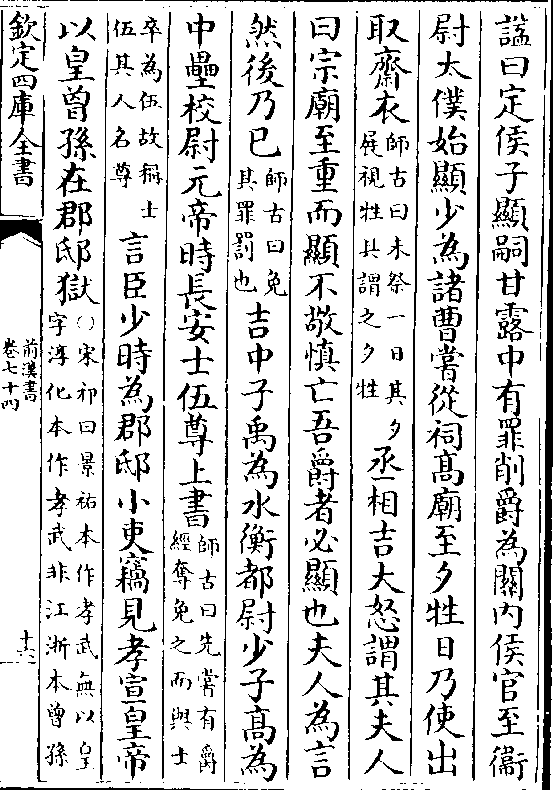 諡曰定侯子顯嗣甘露中有罪削爵為關內侯官至衞
尉太僕始顯少為諸曹嘗從祠髙廟至夕牲日乃使出
取齋衣師古曰未祭一日其夕展視牲具謂之夕牲丞相吉大怒謂其夫人
曰宗廟至重而顯不敬慎亡吾爵者必顯也夫人為言
然後乃已師古曰免其罪罰也吉中子禹為水衡都尉少子髙為
中壘校尉元帝時長安士伍尊上書師古曰先嘗有爵經奪免之而與士
卒為伍故稱士伍其人名尊言臣少時為郡邸小吏竊見孝宣皇帝
以皇曾孫在郡邸獄○宋祁曰景祐本作孝武無以皇字淳化本作孝武非江浙本曾孫
欽定四庫全書
前漢書
卷七十四
十六